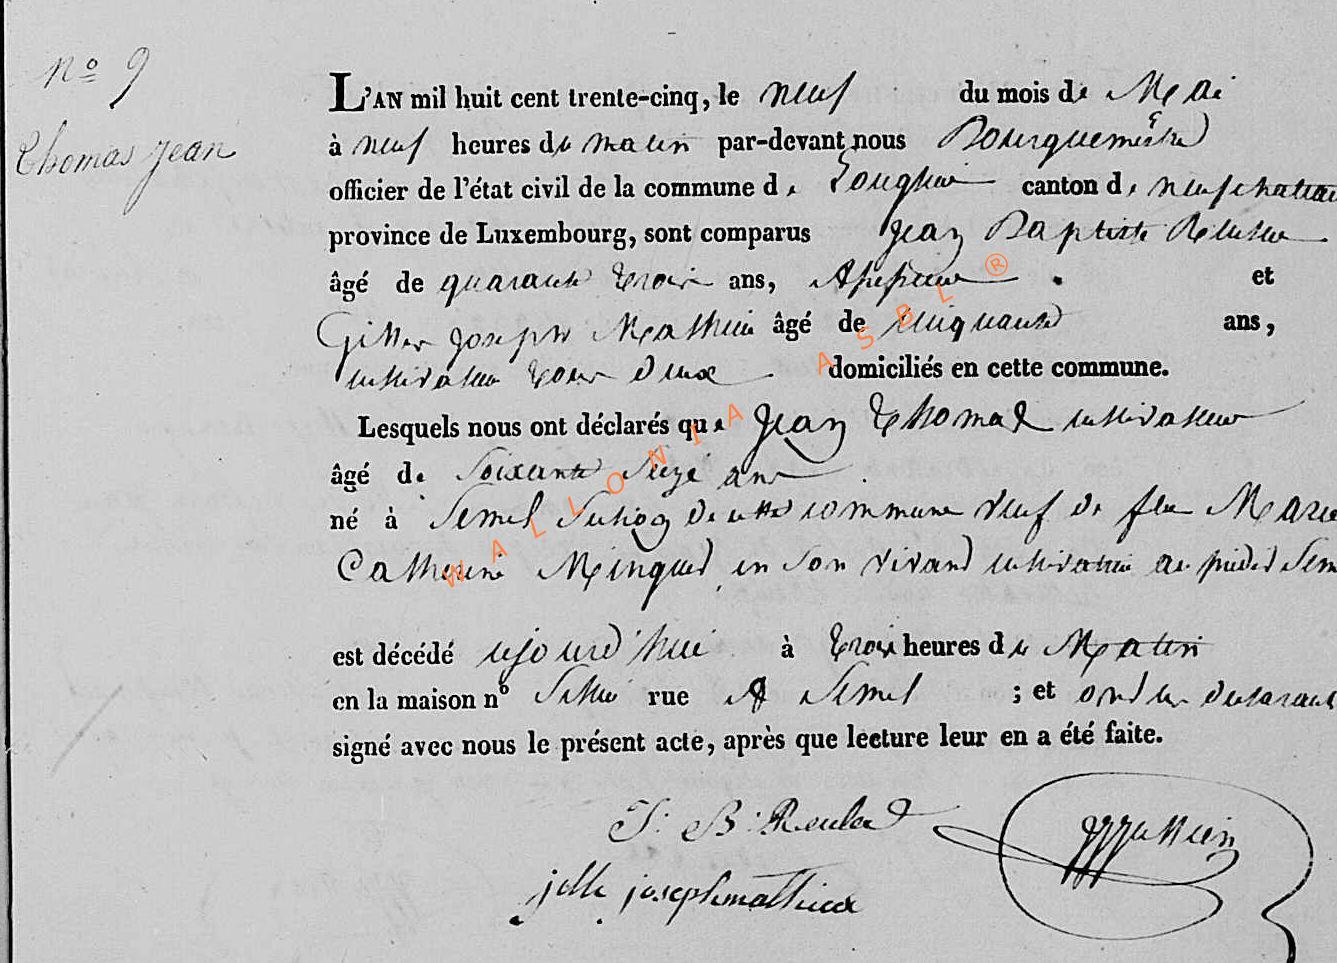 nº 9
Thomas Jean
L'AN mil huit cent trente-cinq, le neuf du mois de Mai
à neuf heures du matin par-devant nous Bourguemestre
officier de l'état civil de la commune de Longlier canton de neufchateau
province de Luxembourg, sont comparus Jean Baptiste
âgé de quarante trois ans, et
Gille Joseph Mathieu âgé de cinquante ans,
cultivateur tous deux domiciliés en cette commune.
Lesquels nous ont déclarés que Jean Thomas cultivateur
âgé de Soixante Seize ans
né à Semel Section de cette commune veuf de feu Marie
Catherine en son vivant cultivatrice Sem
est décédé ajourd'hui à trois heures du Matin
en la maison nº rue A Semel ; et ont les
signé avec nous le présent acte, après que lecture leur en a été faite.
J. B. Reuler
jille joseph mathieu
WALLONIA ASBL ®